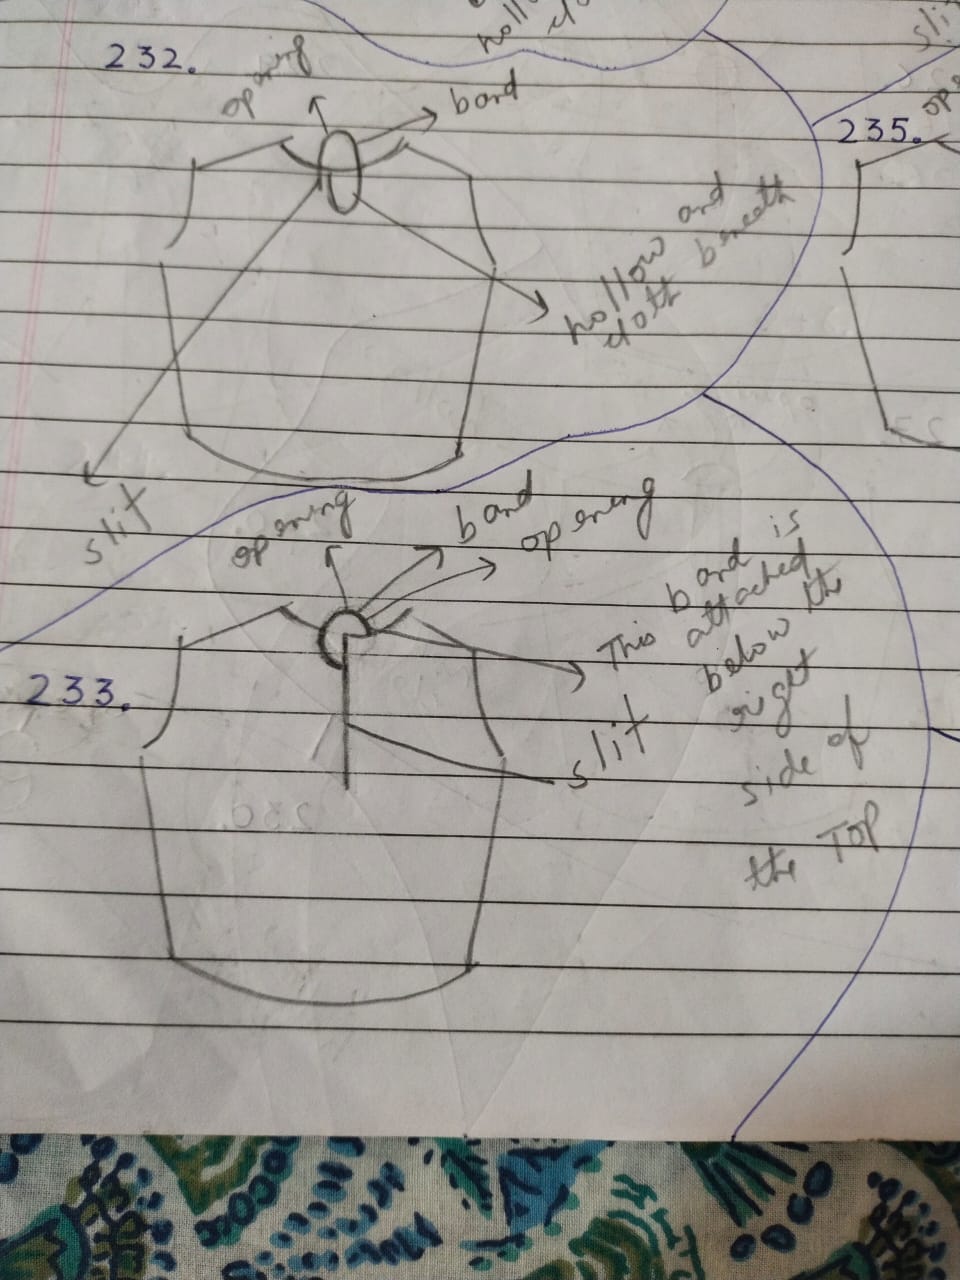 232.
opening
band
hollow and
cloth beneath
slit
235.
233.
opening
band
opening
This band is
attached
below the
right
side of
the TOP
slit